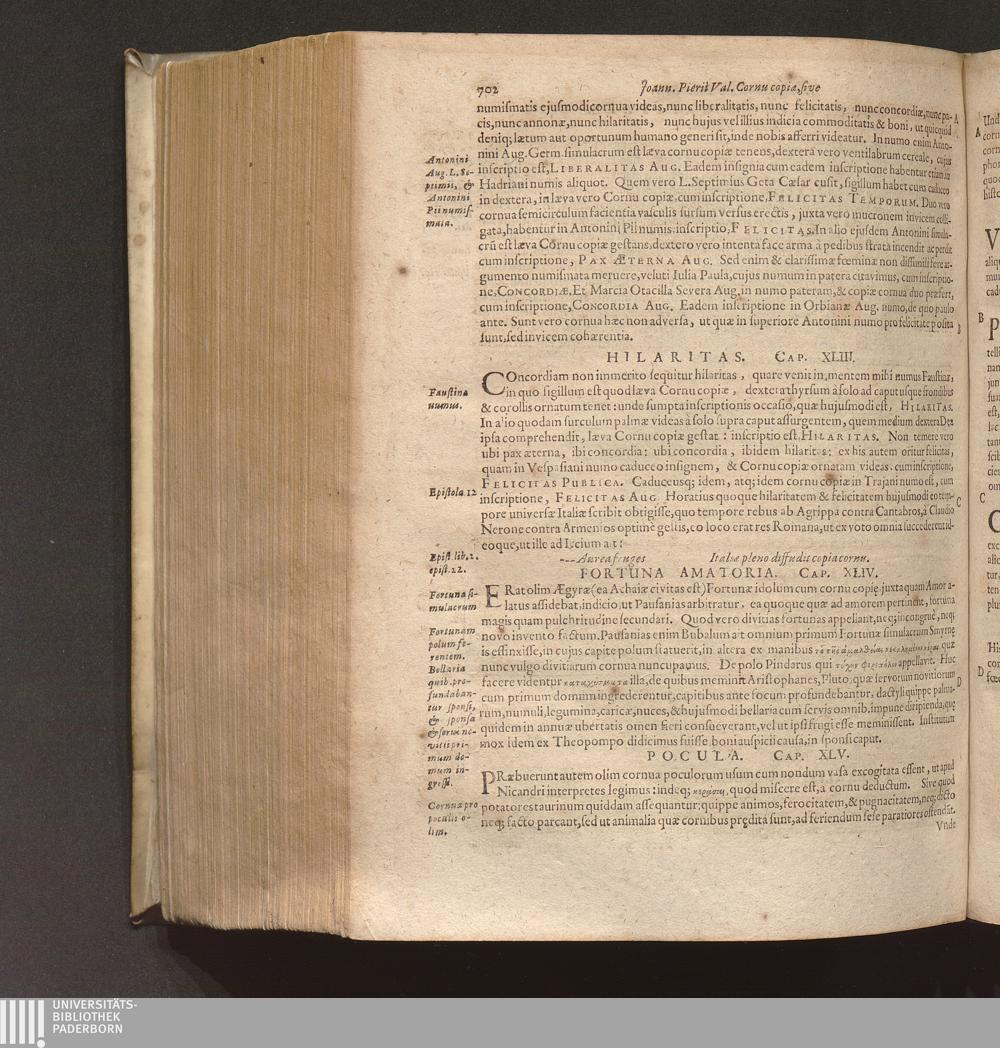 702 Joann. Pierii Val. Cornu copiæ, sive
numismatis ejusmodi cornua videas, nunc liberalitatis, nunc felicitatis, nunc concordiæ, nunc pa-
cis, nunc annonæ, nunc hilaritatis, nunc hujus vel illius indicia commoditatis & boni, ut quicquid
deniq; lætum aut oportunum humano generi sit, inde nobis afferri videatur. In numo enim Anto-
nini Aug. Germ. simulacrum est læva cornu copiæ tenens, dextera vero ventilabrum cereale, cujus
inscriptio est, LIBERALITAS AUG. Eadem insignia cum eadem inscriptione habentur etiam in
Hadriani numis aliquot. Quem vero L. Septimius Geta Cæsar cusit, sigillum habet cum caduceo
in dextera, in læva vero Cornu copiæ, cum inscriptione, FELICITAS TEMPORUM. Duo vero
cornua semicirculum facientia vasculis sursum versus erectis, juxta vero mucronem invicem colli-
gata, habentur in Antonini Pii numis: inscriptio, FELICITAS. In alio ejusdem Antonini simula-
crū est læva Cornu copiæ gestans, dextero vero intenta face arma à pedibus strata incendit ac perdit
cum inscriptione, PAX ÆTERNA AUG. Sed enim & clarissimæ fœminæ non dissimili fere ar-
gumento numismata meruere, veluti Iulia Paula, cujus numum in patera citavimus, cum inscriptio-
ne, CONCORDIÆ, Et Marcia Otacilla Severa Aug. in numo pateram, & copiæ cornua duo præfert,
cum inscriptione, CONCORDIA AUG. Eadem inscriptione in Orbianæ Aug. numo, de quo paulo
ante. Sunt vero cornua hæc non adversa, ut quæ in superiore Antonini numo pro felicitate posita
sunt, sed invicem cohærentia.
Antonini
Aug. L. Se-
ptimii, &
Antonini
Pii numis-
mata.
A
B
HILARITAS. CAP. XLIII.
COncordiam non immerito sequitur hilaritas, quare venit in mentem mihi numus Faustinæ,
in quo sigillum est quod læva Cornu copiæ, dextera thyrsum à solo ad caput usque frondibus
& corollis ornatum tenet: unde sumpta inscriptionis occasio, quæ hujusmodi est, HILARITAS.
In alio quodam surculum palmæ videas à solo supra caput assurgentem, quem medium dextera Dea
ipsa comprehendit, læva Cornu copiæ gestat: inscriptio est, HILARITAS. Non temere vero
ubi pax æterna, ibi concordia: ubi concordia, ibidem hilaritas: ex his autem oritur felicitas,
quam in Vespasiani numo caduceo insignem, & Cornu copiæ ornatam videas, cum inscriptione,
FELICITAS PUBLICA. Caduceusq; idem, atq; idem cornu copiæ in Trajani numo est, cum
inscriptione, FELICITAS AUG. Horatius quoque hilaritatem & felicitatem hujusmodi eo tem-
pore universæ Italiæ scribit obtigisse, quo tempore rebus ab Agrippa contra Cantabros, à Claudio
Nerone contra Armenios optimè gestis, eo loco erat res Romana, ut ex voto omnia succederent id-
eoque, ut ille ad Iccium ait:
--- Aurea fruges Italiæ pleno diffudit copia cornu.
Faustinæ
numus.
Epistola 12
Epist. lib. 2.
epist. 22.
C
FORTUNA AMATORIA. CAP. XLIV.
ERat olim Ægyræ (ea Achaiæ civitas est) Fortunæ idolum cum cornu copię, juxta quam Amor a-
latus assidebat, indicio, ut Pausanias arbitratur, ea quoque quæ ad amorem pertinent, fortuna
magis quam pulchritudine secundari. Quod vero divitias fortunas appellant, neq; incongruè, neq;
novo invento factum. Pausanias enim Bubalum ait omnium primum Fortunæ simulacrum Smyrnę
is effinxisse, in cujus capite polum statuerit, in altera ex manibus quæ
nunc vulgo divitiarum cornua nuncupamus. De polo Pindarus qui appellavit. Huc
facere videntur illa, de quibus meminit Aristophanes, Pluto, quæ servorum novitiorum
cum primum domum ingrederentur, capitibus ante focum profundebantur, dactyli quippe palma-
rum, numuli, legumina, caricæ, nuces, & hujusmodi bellaria cum servis omnib. impune diripienda, quę
quidem in annuæ ubertatis omen fieri consueverant, vel ut ipsi frugi esse meminissent. Institutum
mox idem ex Theopompo didicimus fuisse, boni auspicii causa, in sponsi caput.
Fortunæ si-
mulacrum
Fortunam
polum fe-
rentem.
Bellaria
quib. pro-
fundaban-
tur sponsi,
& sponsa
& servi no-
vitii pri-
mum do-
mum in-
gressi.
D
POCULA. CAP. XLV.
PRæbuerunt autem olim cornua poculorum usum cum nondum vasa excogitata essent, ut apud
Nicandri interpretes legimus: indeq; quod miscere est, à cornu deductum. Sive quod
potatores taurinum quiddam assequantur: quippe animos, ferocitatem, & pugnacitatem, neq; dicto
neq; facto parcant, sed ut animalia quæ cornibus prędita sunt, ad feriendum sese paratiores ostendāt.
Vnde
Cornua pro
poculis o-
lim.
UNIVERSITÄTS-
BIBLIOTHEK
PADERBORN